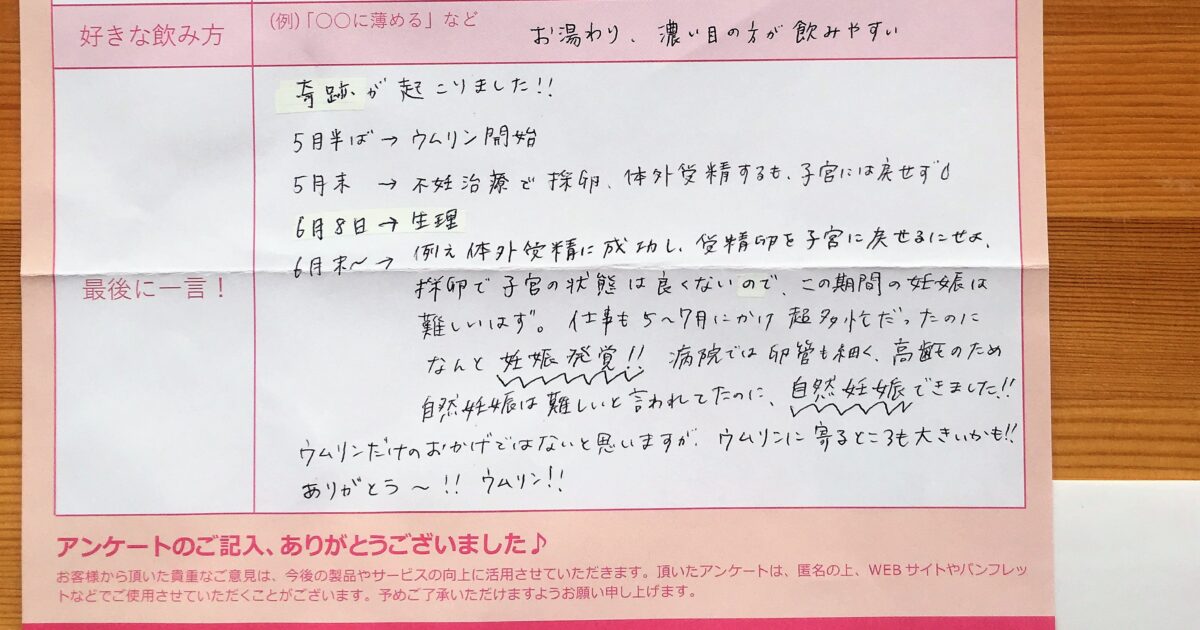 好きな飲み方
(例)「〇〇に薄める」など
お湯わり、濃い目の方が飲みやすい
最後に一言!
奇跡が起こりました!!
5月半ば→ウムリン開始
5月末 →不妊治療で採卵、体外受精するも、子宮には戻せず
6月8日→生理
6月末〜→例え体外受精に成功し、受精卵を子宮に戻せるにせよ、
採卵で子宮の状態は良くないので、この期間の妊娠は
難しいはず。仕事も5〜7月にかけ超多忙だったのに
なんと妊娠発覚!! 病院では卵管も細く、高齢のため
自然妊娠は難しいと言われてたのに、自然妊娠できました!!
ウムリンだけのおかげではないと思いますが、ウムリンに寄るところも大きいかも!!
ありがとう〜!! ウムリン!!
アンケートのご記入、ありがとうございました♪
お客様から頂いた貴重なご意見は、今後の製品やサービスの向上に活用させていただきます。頂いたアンケートは、匿名の上、WEBサイトやパンフレッ
トなどでご使用させていただくことがございます。予めご了承いただけますようお願い申し上げます。